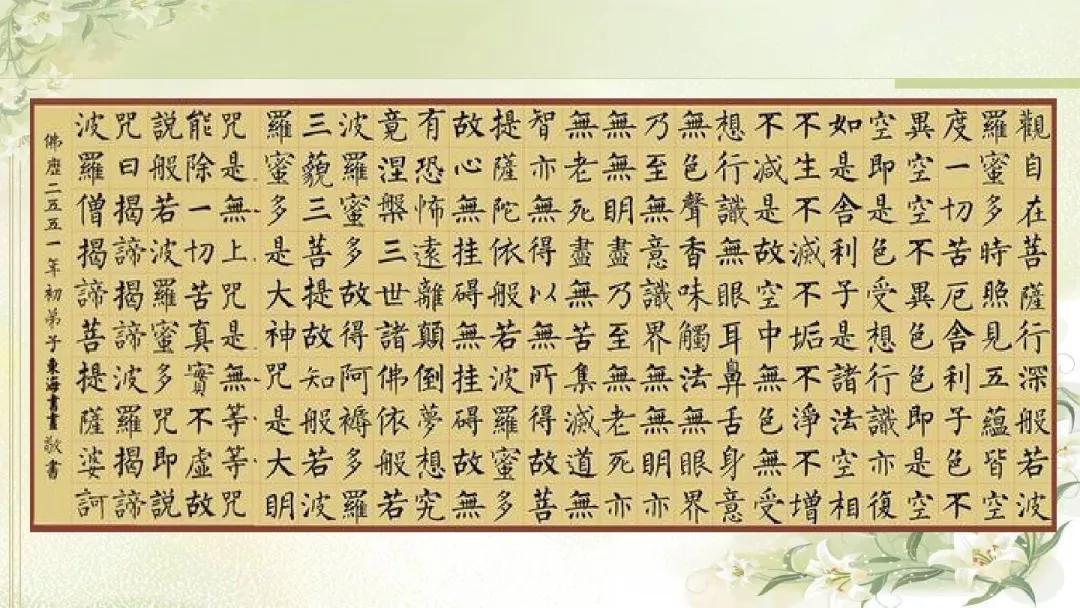 觀自在菩薩行深般若波
羅蜜多時照見五蘊皆空
度一切苦厄舍利子色不
異空空不異色色即是空
空即是色受想行識亦復
如是舍利子是諸法空相
不生不滅不垢不淨不增
不減是故空中無色無受
想行識無眼耳鼻舌身意
無色聲香味觸法無眼界
乃至無意識界無無明亦
無無明盡乃至無老死亦
無老死盡無苦集滅道無
智亦無得以無所得故菩
提薩陀依般若波羅蜜多
故心無挂碍無挂碍故無
有恐怖遠離顛倒夢想究
竟涅槃三世諸佛依般若
波羅蜜多故得阿褥多羅
三藐三菩提故知般若波
羅蜜多是大神咒是大明
咒是無上咒是無等等咒
能除一切苦真實不虛故
說般若波羅蜜多咒即說
咒曰揭諦揭諦波羅揭諦
波羅僧揭諦菩提薩婆訶
佛曆二五五一年初弟子東海書敬書